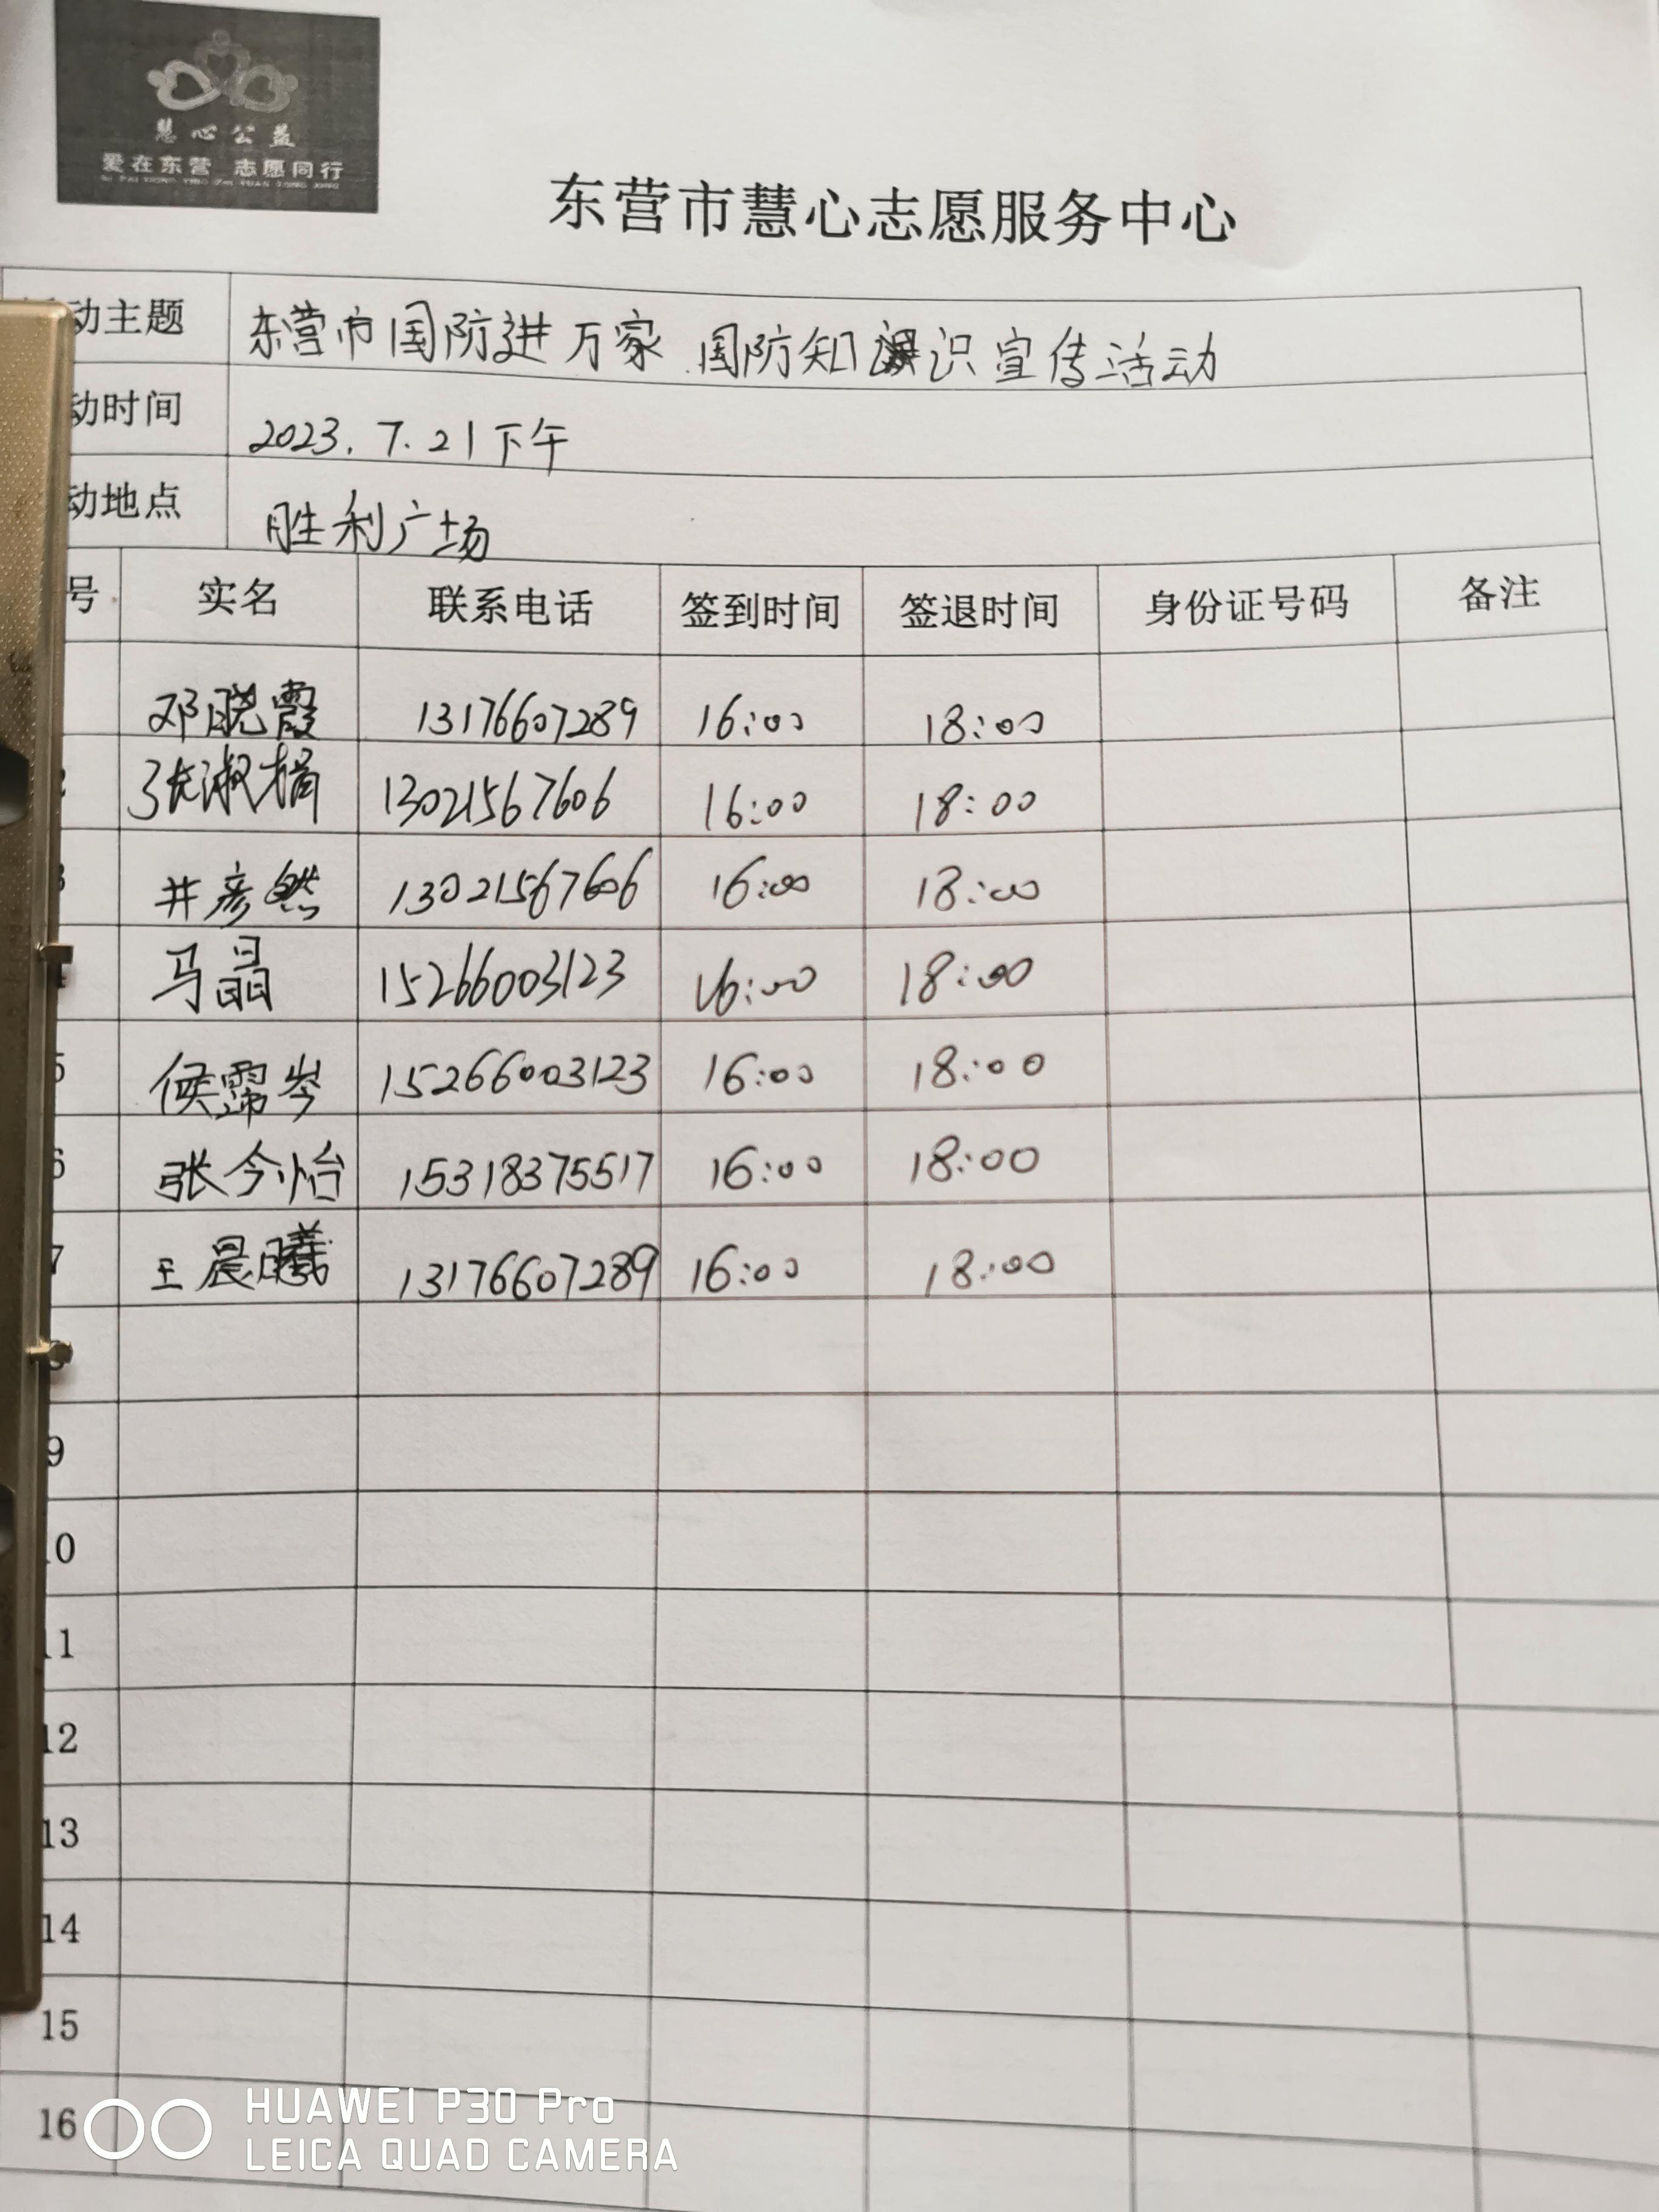 慧心公益
爱在东营 志愿同行
东营市慧心志愿服务中心
动主题 东营市国防进万家 国防知识宣传活动
动时间 2023.7.21下午
动地点 胜利广场
号 实名 联系电话 签到时间 签退时间 身份证号码 备注
邓晓霞 13176607289 16:00 18:00
2 张淑娟 13021567606 16:00 18:00
3 井彦然 13021567606 16:00 18:00
4 马晶 15266003123 16:00 18:00
5 侯霈岑 15266003123 16:00 18:00
6 张今怡 15318375517 16:00 18:00
7 王晨曦 13176607289 16:00 18:00
8
9
10
11
12
13
14
15
16
HUAWEI P30 Pro
LEICA QUAD CAMERA